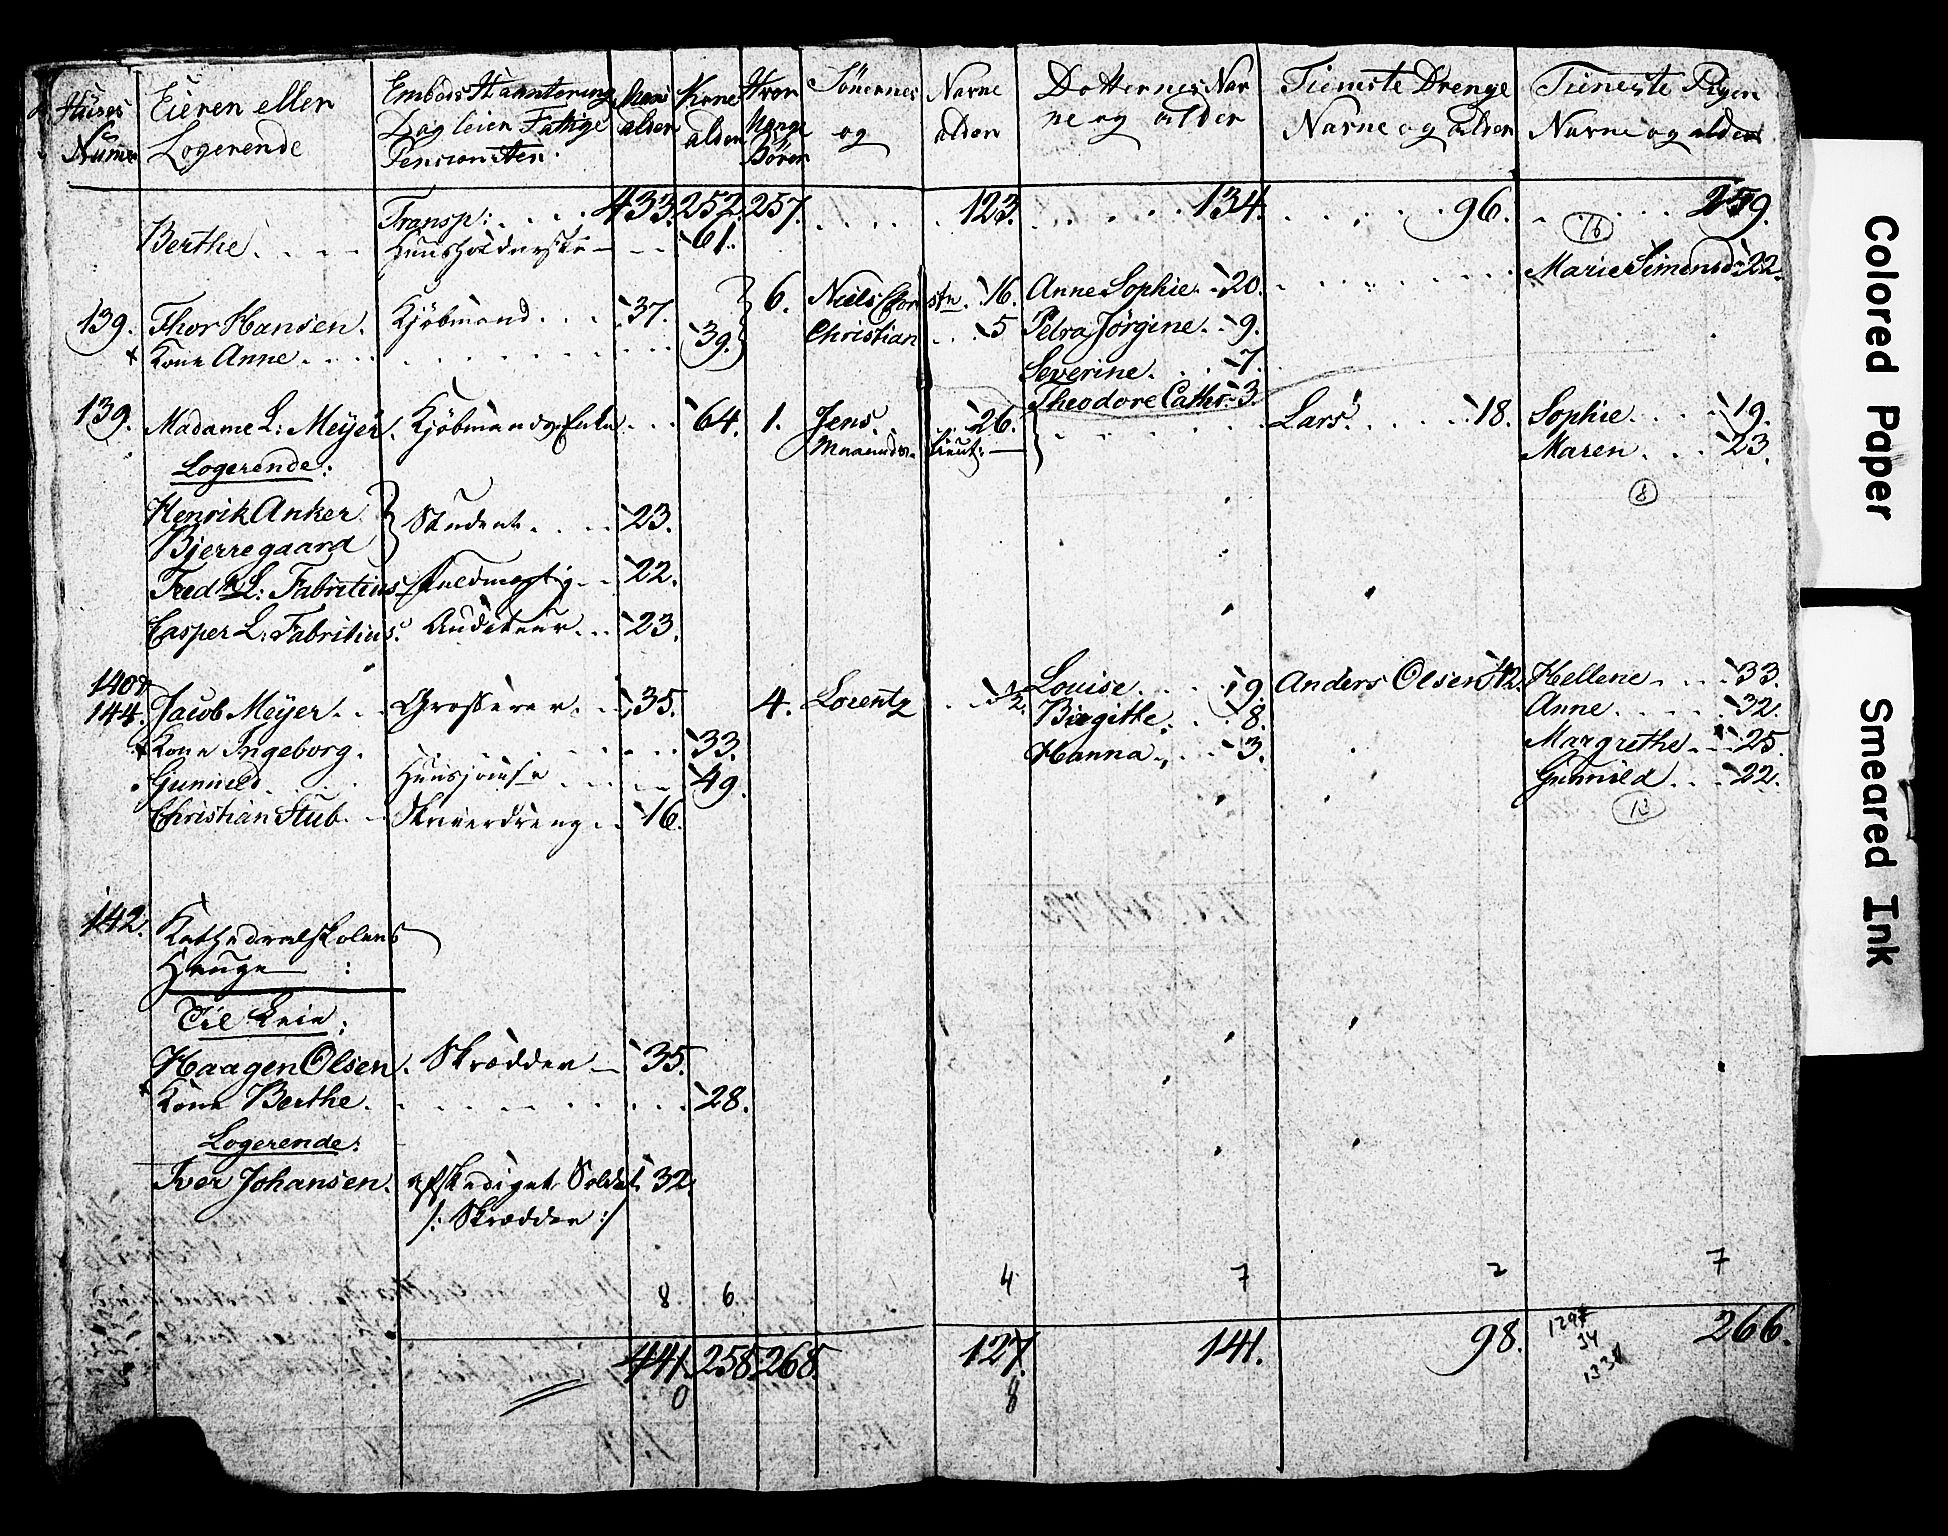 Huses Numer | Eieren eller Logerende | Embeds Haantering Dagleier Fattige Pensionister | Mans alder | Kone alder | Hvor Mange Børn | Sönernes og | Navne alder | Dotternes Navne og alder | Tieneste Drenge Navne og alder | Tieneste Piger Navne og alder
Transp: . . . 433. 252. 257. . . . . 123. . . . 134. . . . 96. . . . 259.
Berthe . . . Huusholderske — 61. (16)
Marie Simensd: 22.
139. Thor Hansen. Kjøbmand . . . 37. 6. Niels Chorstn. 16. Anne Sophie. 20.
Kone Anne . . . 39. Christian . . 5 Petra Jörgine. 9.
Severine. . . 7.
Theodore Cathr. 3.
139. Madame L: Meyer. Kjöbmands Enke . . . 64. 1. Jens. 26. Lars. . . . 18. Sophie . . . 19.
Lieut: — Maren . . . 23.
Logerende: (8)
Henrik Anker
Bjerregaard Student. . . 23.
Fredk L: Fabritius Fuldmægtig . . 22.
Casper L: Fabritius. Auditeur . . 23.
140 &
144. Jacob Meyer . . Grosserer. . 35. 4. Lorentz . . ½. Louise . . . 9. Anders Olsen 42. Hellene . . . 33.
Kone Ingeborg. . . . 33. Birgitte. . . 8. Anne . . . 32.
Gunnild. Huusjomfr . . . 49. Hanna . . . 3. Margrethe . . 25.
Christian Stub . . Skriverdreng . . 16. Gunnild . . . 22.
(13)
142. Kathedralskolens
Hauge :
Til Leie:
Haagen Olsen. Skrædder — 35.
Kone Berthe . . . . 28.
Logerende:
Iver Johansen. afskediget Soldat 32.
/: Skrædder :/
8 6 4 7 2 7
441 258. 268. 127. 141. 98. 266.
0 8
34
1331
Colored Paper
Smeared Ink